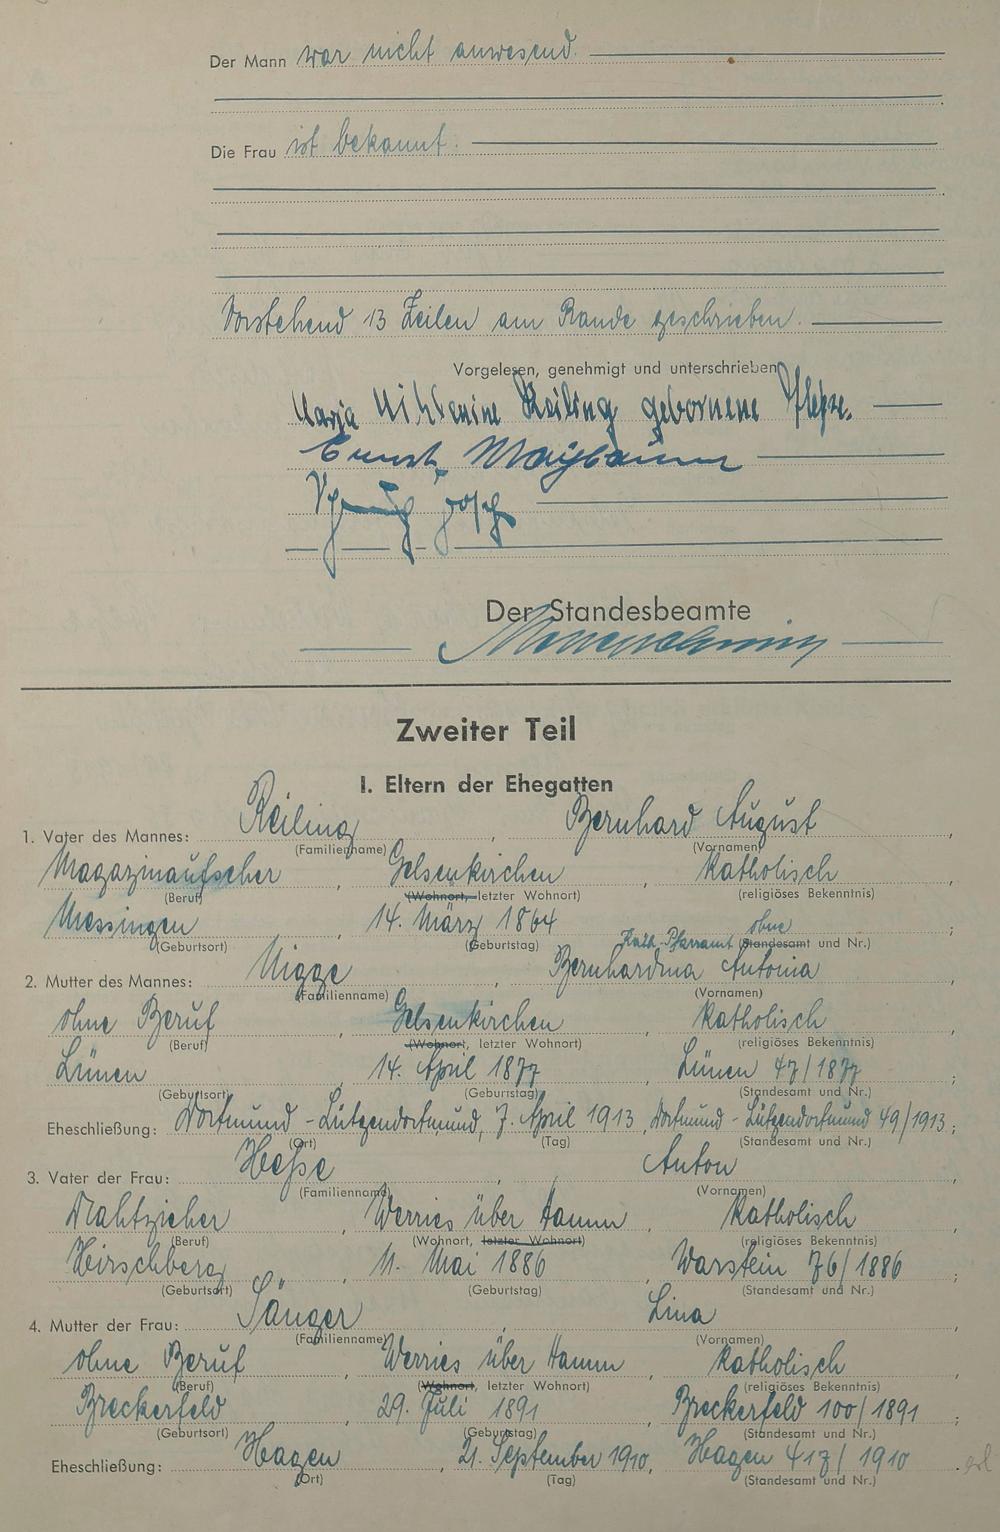 Der Mann war nicht anwesend.
Die Frau ist bekannt.
Vorstehend 13 Zeilen am Rande geschrieben.
Vorgelesen, genehmigt und unterschrieben
Maria Wilhelmine Reiling geborene Hesse.
Ernst Maybaum
Der Standesbeamte
Zweiter Teil
I. Eltern der Ehegatten
Reiling Bernhard August
1. Vater des Mannes: , ,
(Familienname) (Vornamen)
Magazinaufseher , Gelsenkirchen , katholisch
(Beruf) (Wohnort, letzter Wohnort) (religiöses Bekenntnis)
Messingen , 14. März 1864 Kath. Pfarramt ohne ;
(Geburtsort) (Geburtstag) (Standesamt und Nr.)
2. Mutter des Mannes: Nigge , Bernhardina Antonia ,
(Familienname) (Vornamen)
ohne Beruf , Gelsenkirchen , katholisch
(Beruf) (Wohnort, letzter Wohnort) (religiöses Bekenntnis)
Lünen , 14. April 1877 , Lünen 47/1877 ;
(Geburtsort) (Geburtstag) (Standesamt und Nr.)
Eheschließung: Dortmund-Lütgendortmund, 7. April 1913, Dortmund-Lütgendortmund 49/1913;
(Ort) (Tag) (Standesamt und Nr.)
3. Vater der Frau: Hesse , Anton ,
(Familienname) (Vornamen)
Drahtzieher , Werries über Hamm , katholisch
(Beruf) (Wohnort, letzter Wohnort) (religiöses Bekenntnis)
Hirschberg , 11. Mai 1886 , Warstein 76/1886 ;
(Geburtsort) (Geburtstag) (Standesamt und Nr.)
4. Mutter der Frau: Sänger , Lina ,
(Familienname) (Vornamen)
ohne Beruf , Werries über Hamm , katholisch
(Beruf) (Wohnort, letzter Wohnort) (religiöses Bekenntnis)
Breckerfeld , 29. Juli 1891 , Breckerfeld 100/1891 ;
(Geburtsort) (Geburtstag) (Standesamt und Nr.)
Eheschließung: Hagen , 21. September 1910, Hagen 417/1910 .
(Ort) (Tag) (Standesamt und Nr.)